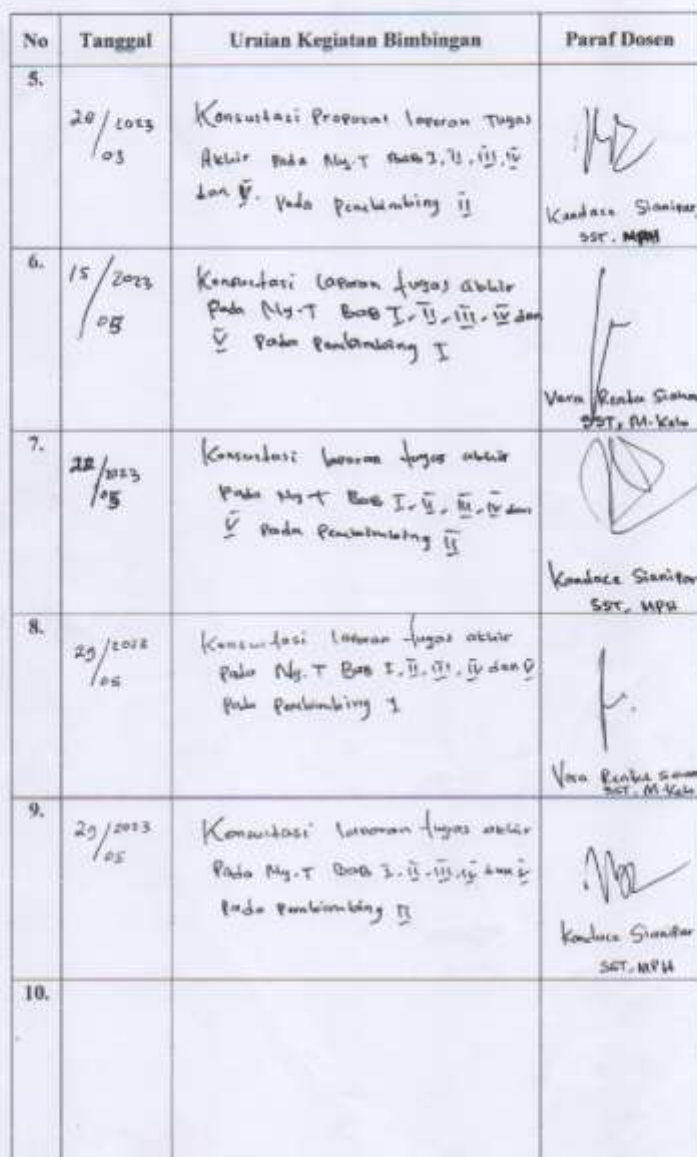 No Tanggal Uraian Kegiatan Bimbingan Paraf Dosen
5.
20/2023
03
Konsultasi Proposal laporan Tugas
Akhir Pada Ny.T BAB I, II, III, IV
dan V. Pada Pembimbing II
Kandace Sianipar
SST. MPH
6.
15/2023
05
Konsultasi laporan tugas akhir
Pada Ny.T BAB I, II, III, IV dan
V Pada Pembimbing I
Vera Renta
SST, M.Keb
7.
22/2023
05
Konsultasi laporan tugas akhir
Pada Ny.T BAB I, II, III, IV dan
V Pada Pembimbing II
Kandace Sianipar
SST, MPH
8.
29/2023
05
Konsultasi laporan tugas akhir
Pada Ny.T BAB I, II, III, IV dan V
Pada Pembimbing I
Vera Renta
SST, M.Keb
9.
29/2023
05
Konsultasi laporan tugas akhir
Pada Ny.T BAB I, II, III, IV dan V
Pada Pembimbing II
Kandace Sianipar
SST, MPH
10.